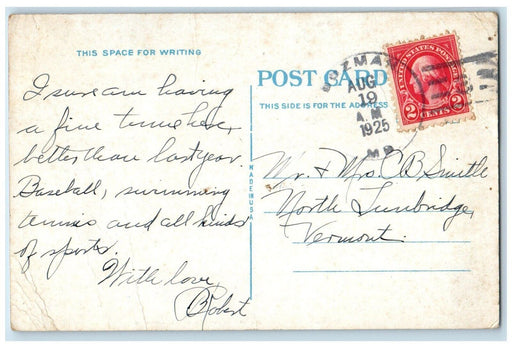 THIS SPACE FOR WRITING
I sure am having
a fine time here,
better than last year.
Baseball, swimming
tennis and all kinds
of sports.
With love,
Robert
MADE IN U.S.A.
POST CARD
THIS SIDE IS FOR THE ADDRESS
AUG
19
A.M
1925
ME
UNITED STATES POSTAGE
2 CENTS 2
Mr. & Mrs. C B Smith
North Tunbridge,
Vermont.